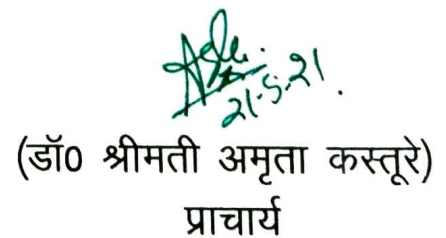 21.5.21.
(डॉ0 श्रीमती अमृता कस्तूरे)
प्राचार्य